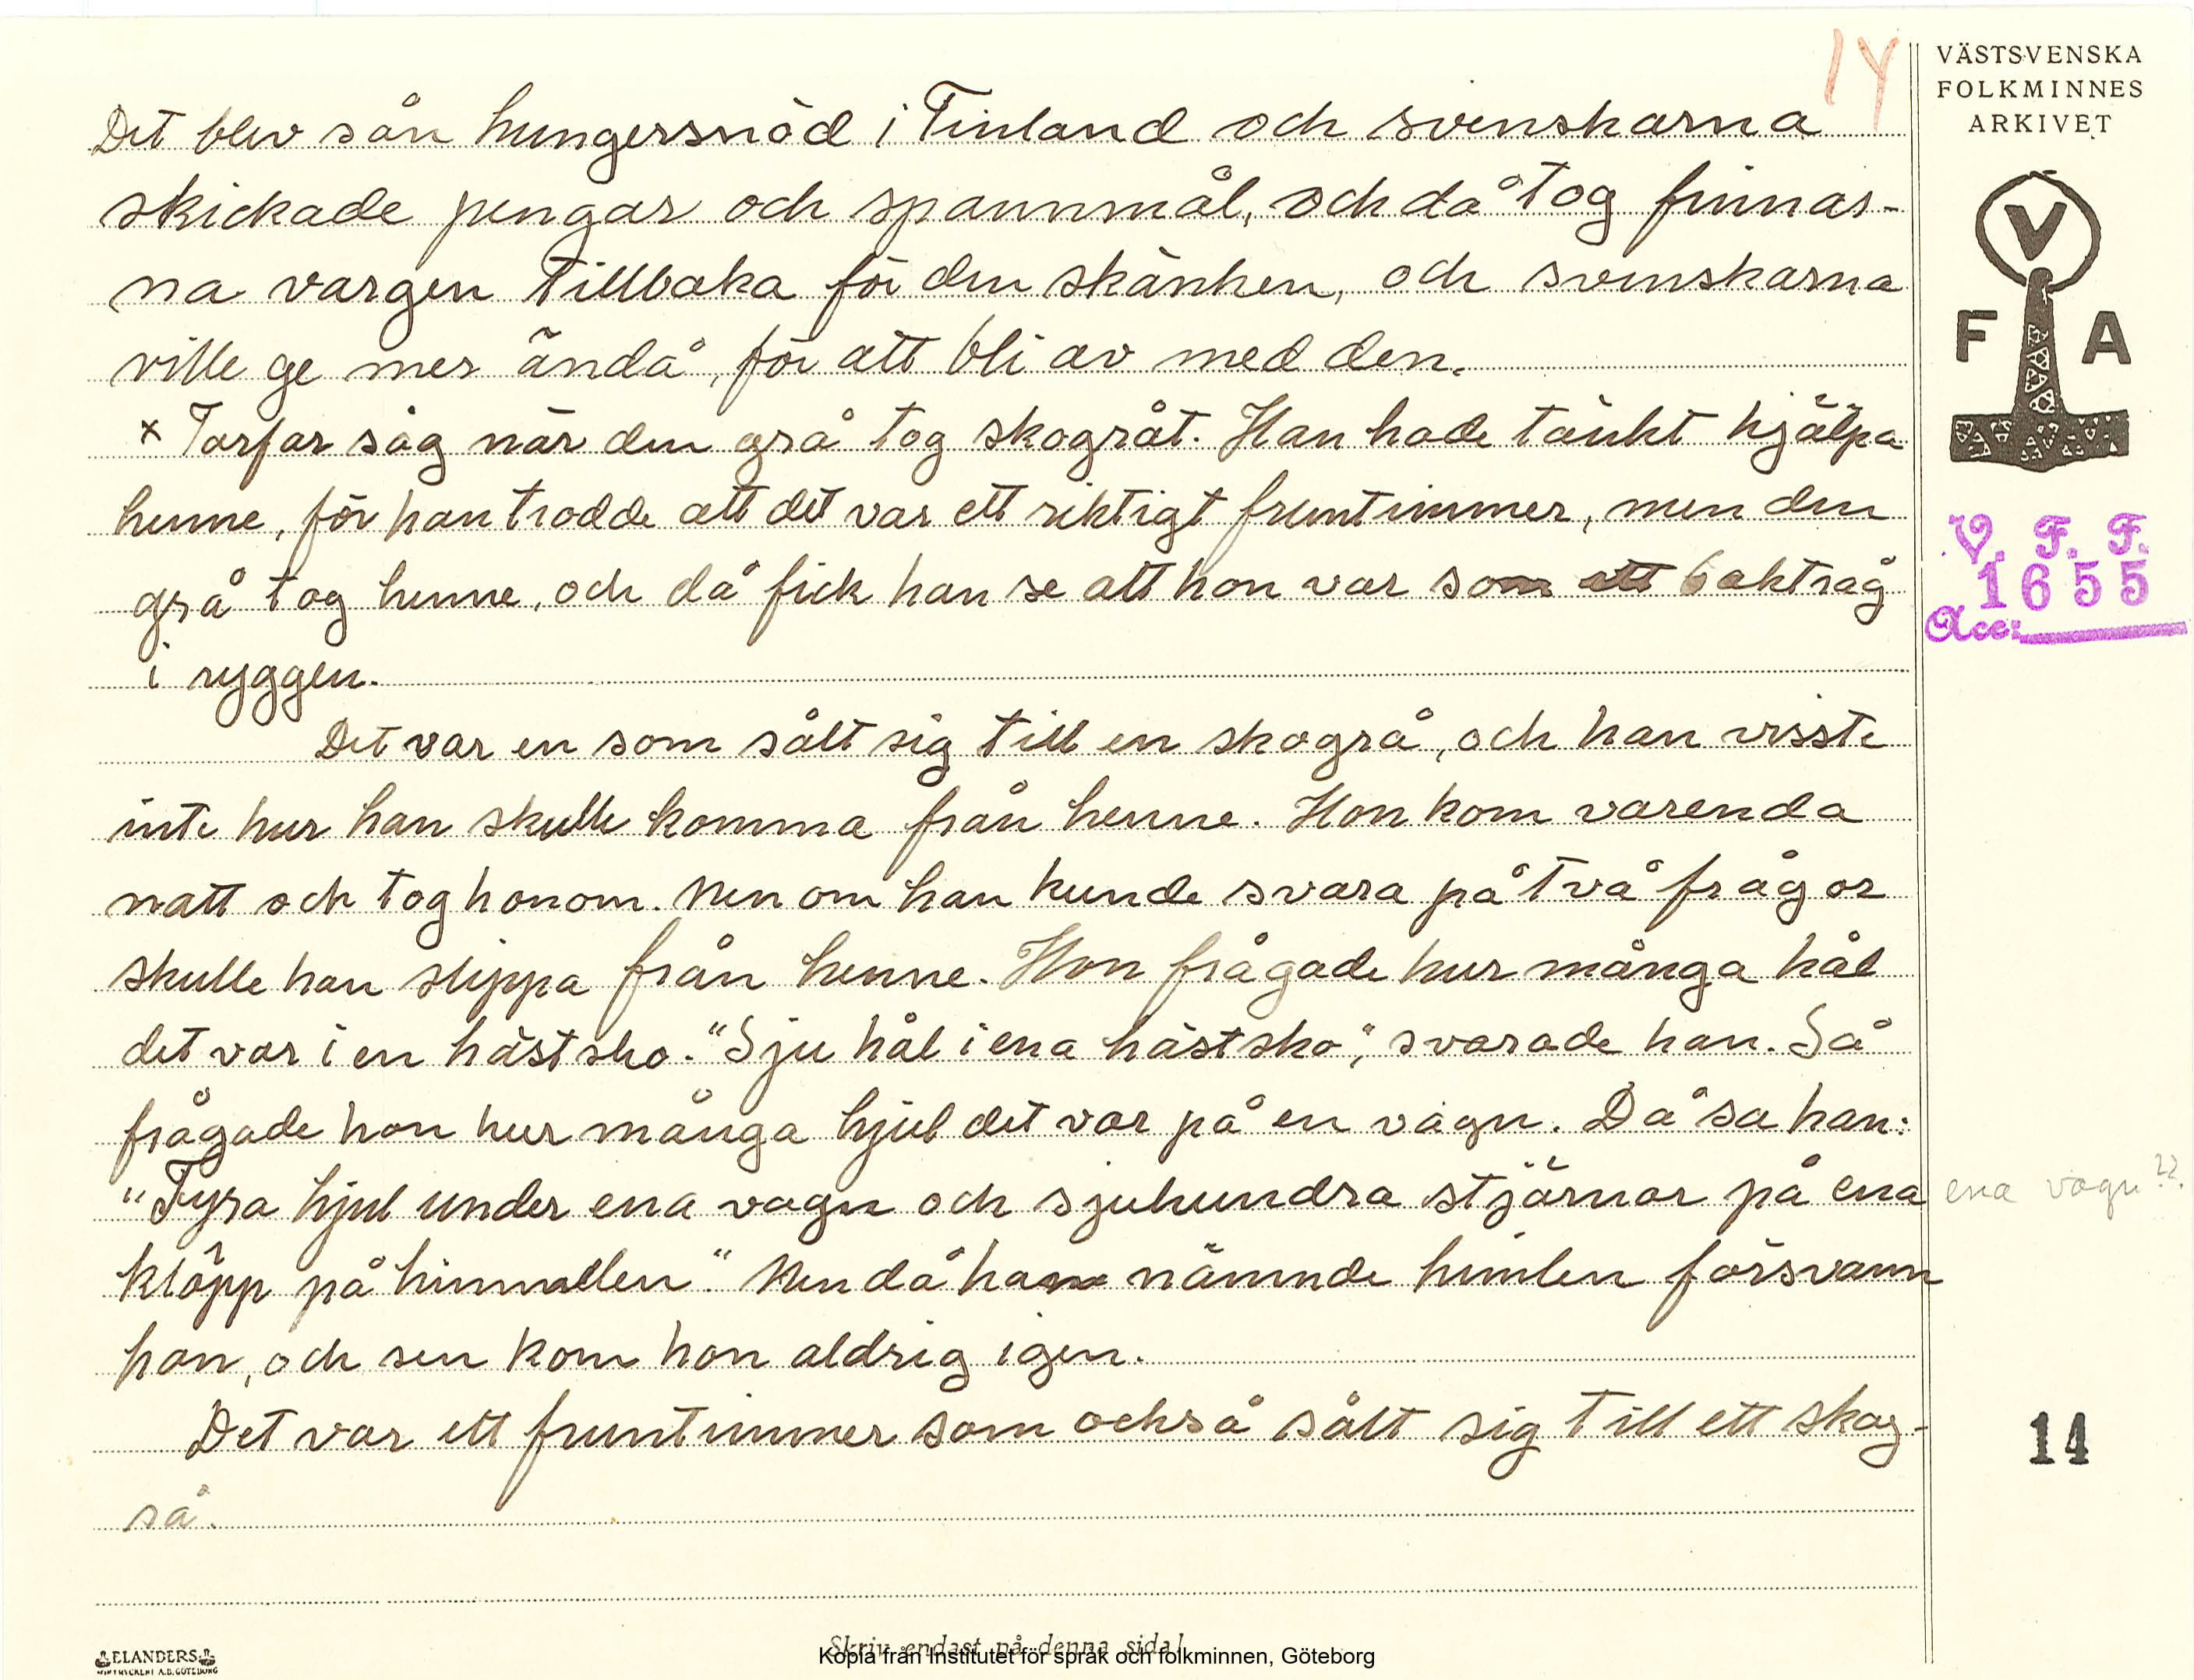 14
VÄSTSVENSKA
FOLKMINNES
ARKIVET
V
F A
V. F. F.
1655
Acc:
Det blev sån hungersnöd i Finland och svenskarna
skickade pengar och spannmål, och då tog finnar-
na vargen tillbaka för den skänken, och svenskarna
ville ge mer ändå, för att bli av med den.
x Farfar såg när den grå tog skogråt. Han hade tänkt hjälpa
henne, för han trodde att det var ett riktigt fruntimmer, men den
grå tog henne, och då fick han se att hon var som ett baktråg
i ryggen.
Det var en som sålt sig till en skogrå, och han visste
inte hur han skulle komma från henne. Hon kom varenda
natt och tog honom. Men om han kunde svara på två frågor
skulle han slippa från henne. Hon frågade hur många hål
det var i en hästsko. "Sju hål i ena hästsko", svarade han. Så
frågade hon hur många hjul det var på en vagn. Då sa han:
"Fyra hjul under ena vagn och sjuhundra stjärnor på ena
ena vagn ??
klöpp på himmellen." Men då han nämnde himlen försvann
hon, och sen kom hon aldrig igen.
Det var ett fruntimmer som också sålt sig till ett skog-
rå.
14
Skriv endast på denna sida!
Kopia från Institutet för språk och folkminnen, Göteborg
ELANDERS
A.B. GÖTEBORG